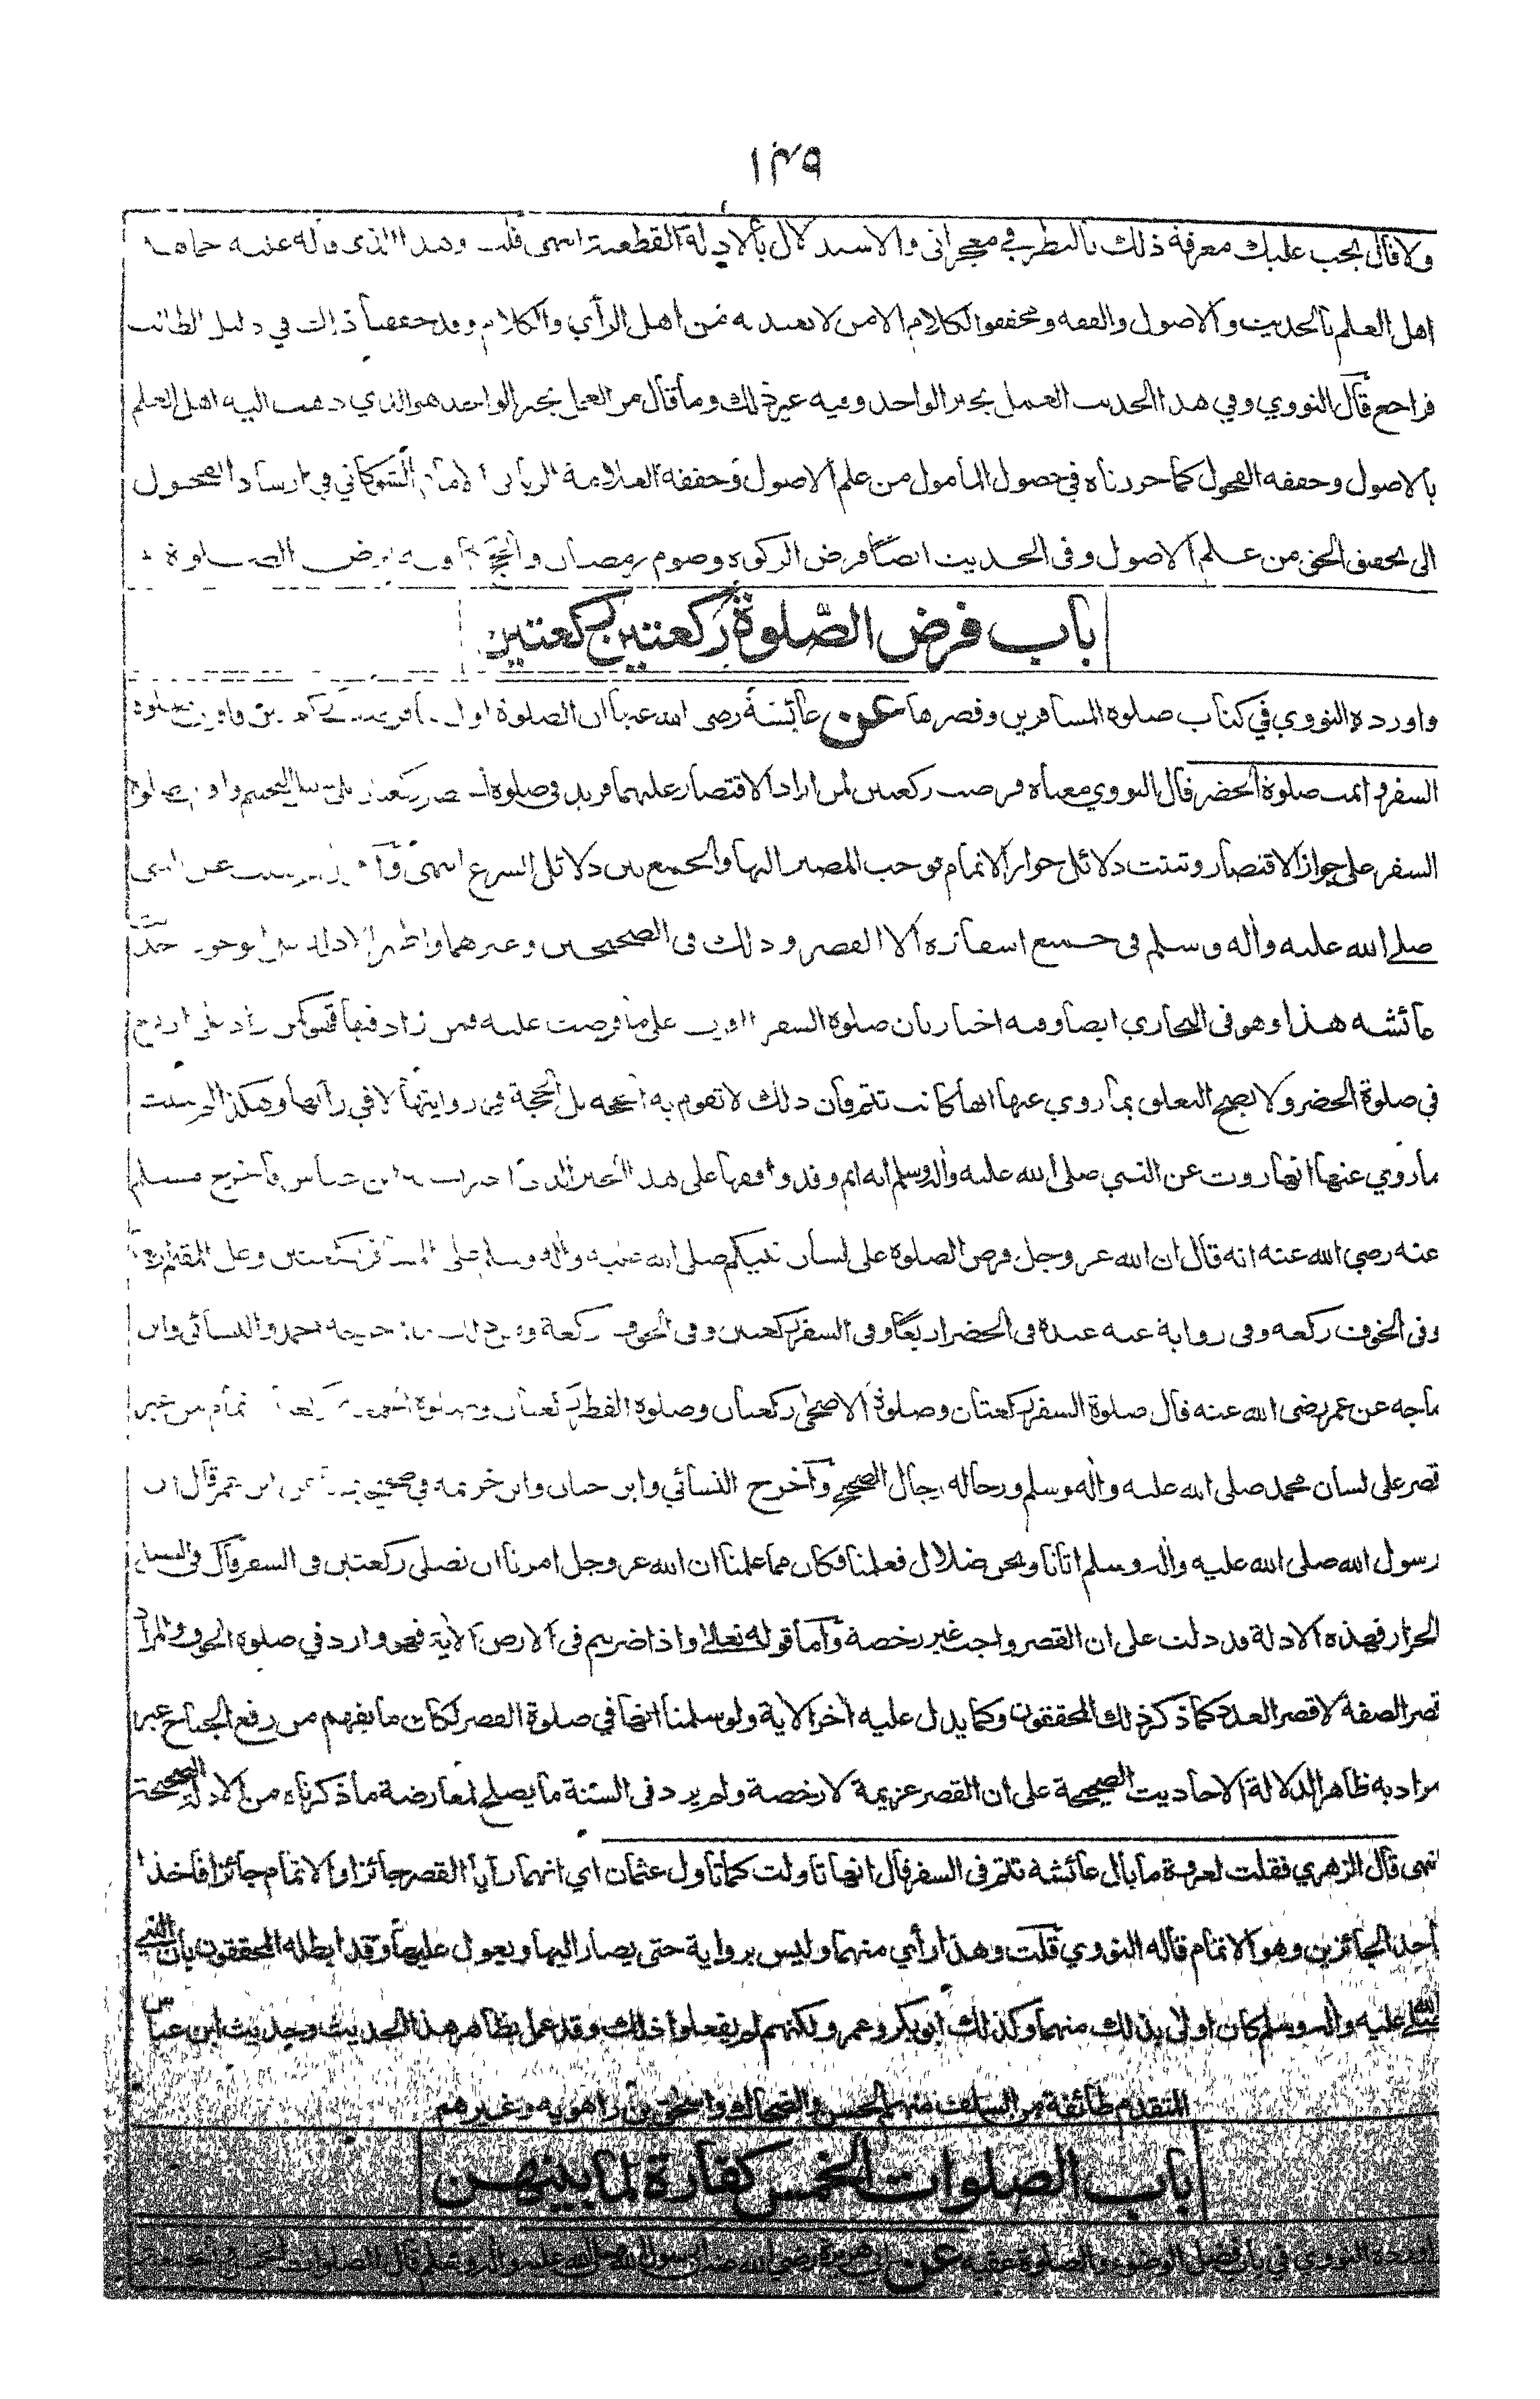 ١٣٩
ولا قال يجب عليك معرفة ذلك بالنظر في معجزاتي والاستدلال بالادلة القطعية انتهى قلت وهذا الذي قاله عليه جماهير
اهل العلم بالحديث والاصول والفقه ومحققوا الكلام الا من لا يعتد به من اهل الرأي والكلام وقد حققنا ذلك في دليل الطالب
فراجع قال النووي وفي هذا الحديث العمل بخبر الواحد وفيه غير ذلك وما قال من العمل بخبر الواحد هو الذي ذهب اليه اهل العلم
بالاصول وحققه الفحول كما حررناه في حصول المأمول من علم الاصول وحققه العلامة الرباني الامام الشوكاني في ارشاد الفحول
الى تحقيق الحق من علم الاصول وفي الحديث ايضا فرض الزكوة وصوم رمضان والحج وفرض الصلوة
باب فرض الصلوة ركعتين ركعتين
واورده النووي في كتاب صلوة المسافرين وقصرها عن عائشة رضي الله عنها ان الصلوة اول ما فرضت ركعتين فاقرت صلوة
السفر واتمت صلوة الحضر قال النووي معناه فرضت ركعتين لمن اراد الاقتصار عليهما فزيد في صلوة الحضر ركعتان على سبيل التحتيم واقرت صلوة
السفر على جواز الاقتصار وثبتت دلائل جواز الاتمام فوجب المصير اليها والجمع بين دلائل الشرع انتهى عن النبي
صلى الله عليه وآله وسلم في جميع اسفاره الا القصر وذلك في الصحيحين وغيرهما واظهر الادلة على الوجوب حديث
عائشة هذا وهو في البخاري ايضا وفيه اخبار بان صلوة السفر اقرت على ما فرضت عليه فمن زاد فيها فهو كمن زاد على اربع
في صلوة الحضر ولا يصح التعلق بما روي عنها انها كانت تتم فان ذلك لا تقوم به الحجة بل الحجة في روايتها لا في رأيها وهكذا لم يثبت
ما روي عنها انها روت عن النبي صلى الله عليه وآله وسلم انه اتم وقد وافقها على هذا الخبر ابن عباس فاخرج مسلم
عنه رضي الله عنه انه قال ان الله عز وجل فرض الصلوة على لسان نبيكم صلى الله عليه وآله وسلم على المسافر ركعتين وعلى المقيم اربعا
وفي الخوف ركعة وفي رواية عنه عنده في الحضر اربعا وفي السفر ركعتين وفي الخوف ركعة احمد والنسائي وابن
ماجه عن عمر رضي الله عنه قال صلوة السفر ركعتان وصلوة الاضحى ركعتان وصلوة الفطر ركعتان وصلوة الجمعة ركعتان تمام من غير
قصر على لسان محمد صلى الله عليه وآله وسلم ورجاله رجال الصحيح وأخرج النسائي وابن حبان وابن خزيمة في صحيحيهما عن ابن عمر قال ان
رسول الله صلى الله عليه وآله وسلم اتانا ونحن ضلال فعلمنا فكان مما علمنا ان الله عز وجل امرنا ان نصلي ركعتين في السفر قال في السيل
الجرار فهذه الادلة قد دلت على ان القصر واجب غير رخصة وأما قوله تعالى واذا ضربتم في الارض الآية فهو وارد في صلوة الخوف والمراد
قصر الصفة لا قصر العدد كما ذكر ذلك المحققون وكما يدل عليه آخر الآية ولو سلمنا انها في صلوة القصر لكان ما يفهم من رفع الجناح غير
مراد به ظاهره لدلالة الاحاديث الصحيحة على ان القصر عزيمة لا رخصة ولم يرد في السنة ما يصلح لمعارضة ما ذكرناه من الادلة الصحيحة
انتهى قال الزهري فقلت لعروة ما بال عائشة تتم في السفر قال انها تاولت كما تاول عثمان اي انهما رأيا القصر جائزا والاتمام جائزا فاخذا
باحد الجائزين وهو الاتمام قاله النووي قلت وهذا رأي منهما وليس برواية حتى يصار اليها ويعول عليها وقد ابطله المحققون بأن النبي
صلى الله عليه وآله وسلم كان اولى بذلك منهما وكذلك ابو بكر وعمر ولكنهم لم يفعلوا ذلك وقد عمل بظاهر هذا الحديث وحديث ابن عباس
المتقدم طائفة من السلف منهم الحسن والضحاك واسحق بن راهويه وغيرهم
باب الصلوات الخمس كفارة لما بينهن
النووي في باب فضل الوضوء والصلوة عقبه عن ابي هريرة رضي الله عنه ان رسول الله صلى الله عليه وآله وسلم قال الصلوات الخمس